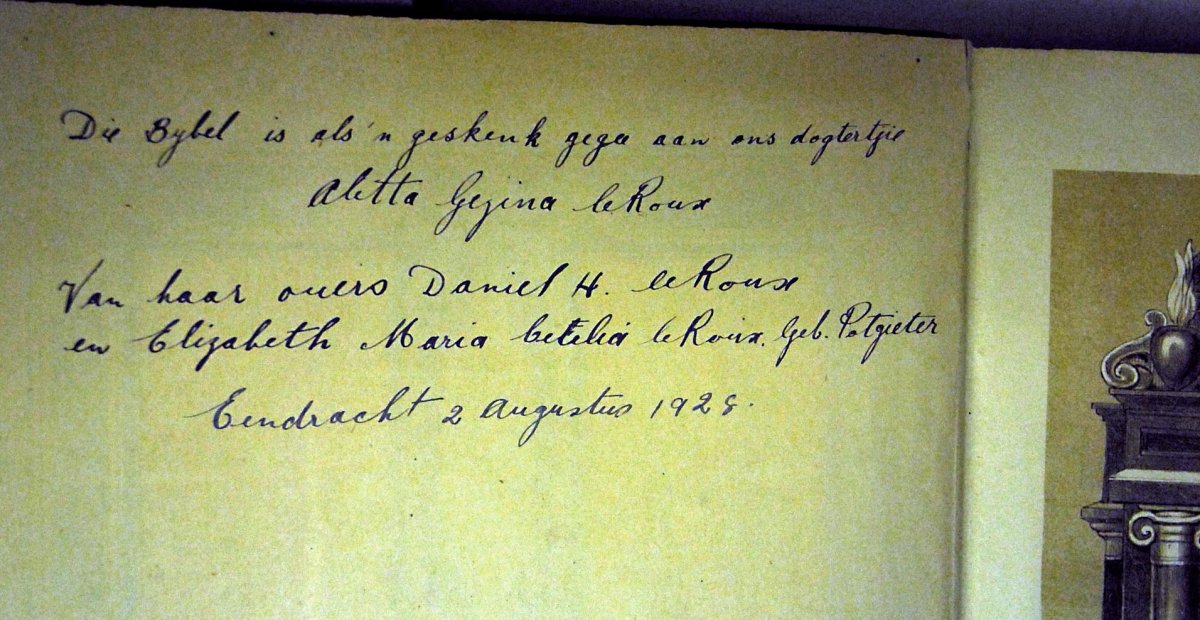 Die Bybel is als 'n geskenk gegee aan ons dogtertjie
Aletta Gezina le Roux
Van haar ouers Daniel H. le Roux
en Elizabeth Maria Cecelia le Roux, Geb. Potgieter
Eendracht 2 Augustus 1928.